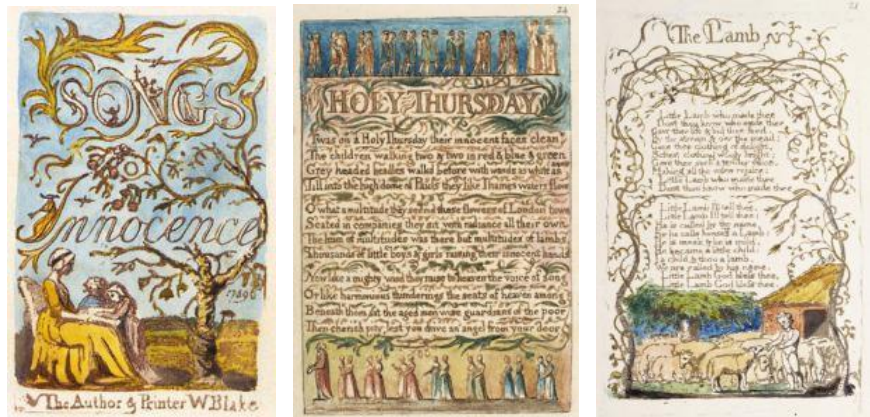 SONGS
of
Innocence
1789
The Author & Printer W Blake
24
HOLY THURSDAY
Twas on a Holy Thursday their innocent faces clean
The children walking two & two in red & blue & green
Grey headed beadles walkd before with wands as white as snow
Till into the high dome of Pauls they like Thames waters flow
O what a multitude they seemd these flowers of London town
Seated in companies they sit with radiance all their own
The hum of multitudes was there but multitudes of lambs
Thousands of little boys & girls raising their innocent hands
Now like a mighty wind they raise to heaven the voice of song
Or like harmonious thunderings the seats of heaven among
Beneath them sit the aged men wise guardians of the poor
Then cherish pity, lest you drive an angel from your door
The Lamb
Little Lamb who made thee
Dost thou know who made thee
Gave thee life & bid thee feed.
By the stream & o'er the mead;
Gave thee clothing of delight,
Softest clothing wooly bright;
Gave thee such a tender voice,
Making all the vales rejoice:
Little Lamb who made thee
Dost thou know who made thee
Little Lamb I'll tell thee,
Little Lamb I'll tell thee;
He is called by thy name,
For he calls himself a Lamb:
He is meek & he is mild,
He became a little child:
I a child & thou a lamb,
We are called by his name.
Little Lamb God bless thee.
Little Lamb God bless thee.